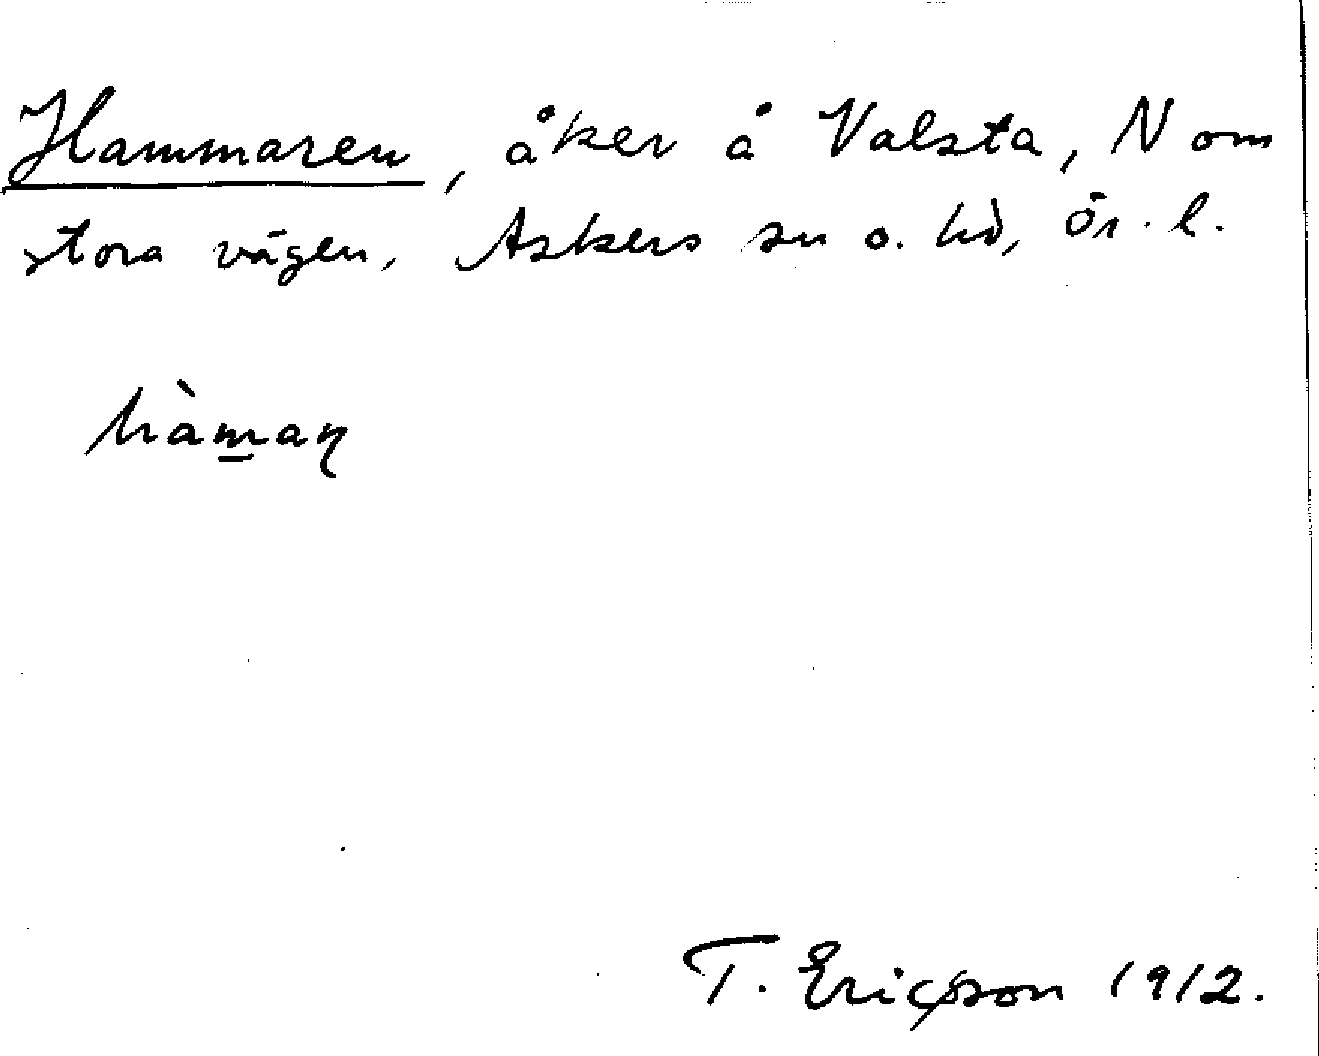 Hammaren, åker å Valsta, N om
stora vägen, Askers sn o. hd, Ör. l.
hàm̲aɳ
T. Ericsson 1912.